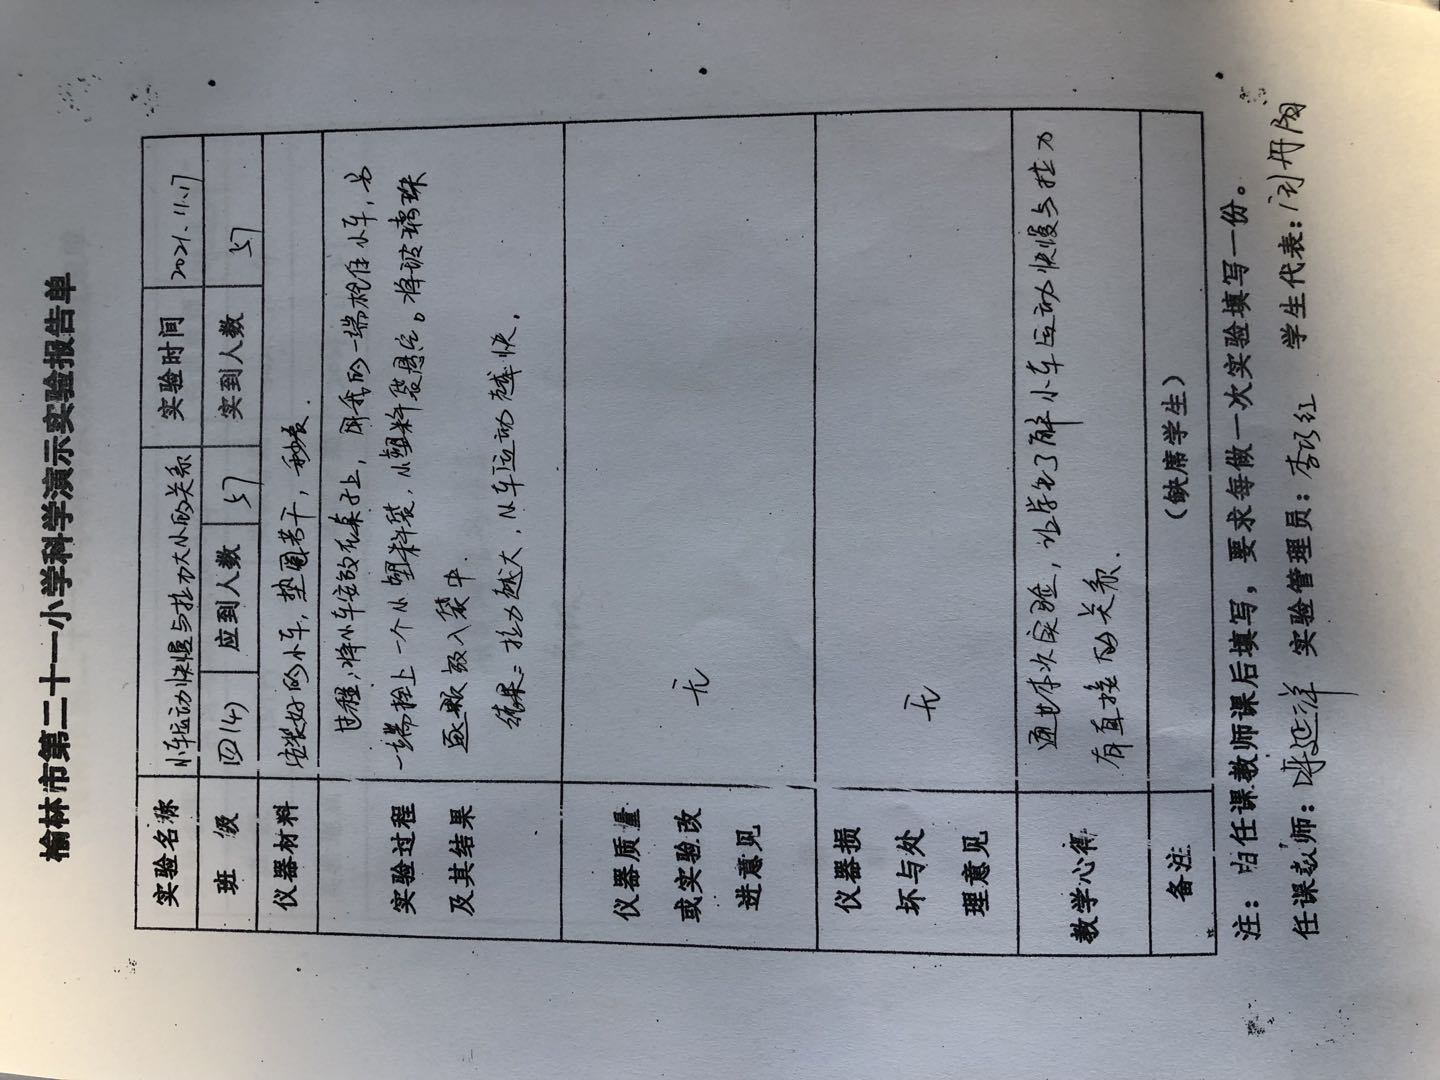 榆林市第二十一小学科学演示实验报告单
实验名称 小车运动快慢与拉力大小的关系 实验时间 2021.11.17
班 级 四(4) 应到人数 57 实到人数 57
仪器材料 安装好的小车，垫圈若干，秒表.
实验过程
及其结果
过程：将小车安放在桌子上，用我的一端栓住小车，另
一端拴上一个小塑料袋，小塑料袋悬空。将玻璃珠
逐颗放入袋中.
结果：拉力越大，小车运动越快.
仪器质量
或实验改
进意见
无
仪器损
坏与处
理意见
无
教学心得
通过本次实验，让学生了解小车运动快慢与拉力
有直接的关系.
备注 （缺席学生）
注：由任课教师课后填写，要求每做一次实验填写一份。
任课教师： 延洋 实验管理员：李巧红 学生代表：